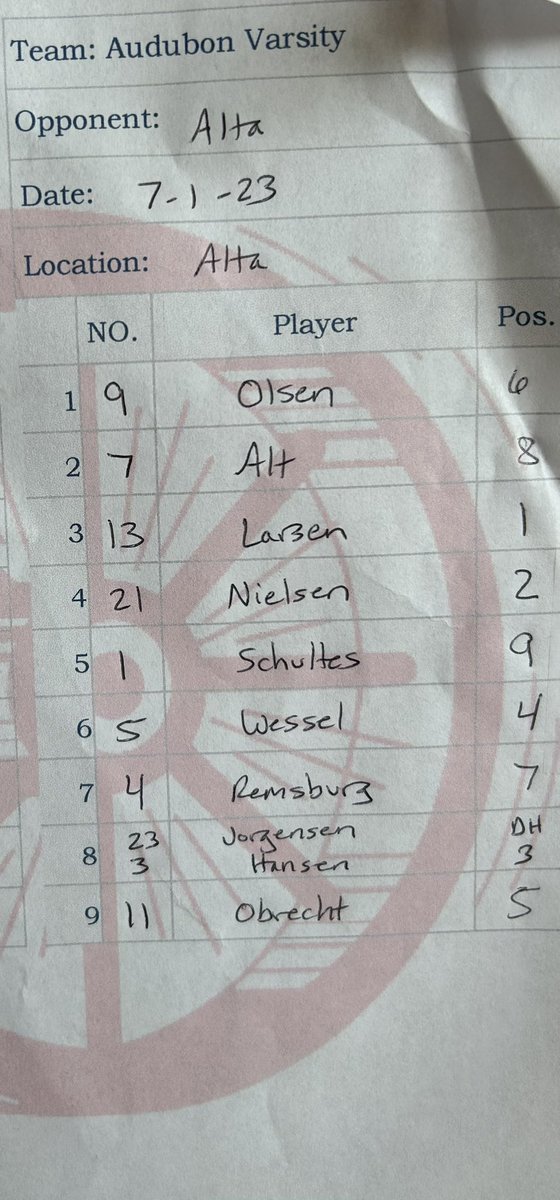 Team: Audubon Varsity
Opponent: Alta
Date: 7-1-23
Location: Alta
NO. Player Pos.
1 9 Olsen 6
2 7 Alt 8
3 13 Larsen 1
4 21 Nielsen 2
5 1 Schultes 9
6 5 Wessel 4
7 4 Remsburg 7
8 23 Jorgensen DH
3 Hansen 3
9 11 Obrecht 5